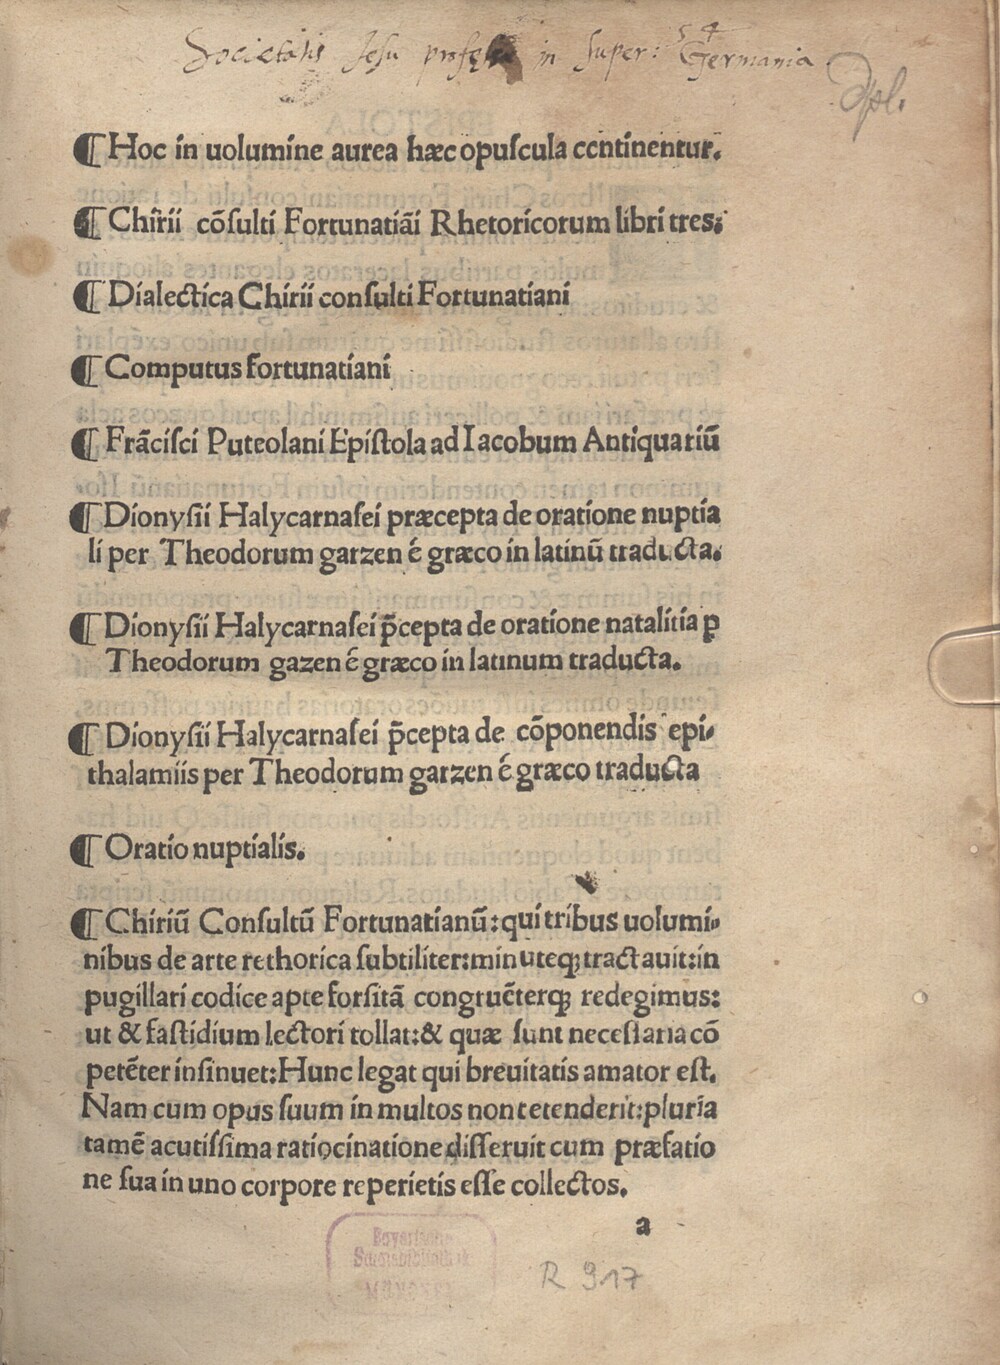 Societatis Jesu in super: Germania
Dpl.
¶ Hoc in uolumine aurea hæc opuſcula ccntinentur.
¶ Chirii cõſulti Fortunatiãi Rhetoricorum libri tres;
¶ Dialectica Chirii conſulti Fortunatiani
¶ Computus fortunatiani
¶ Frãciſci Puteolani Epiſtola ad Iacobum Antiquariũ
¶ Dionyſii Halycarnaſei præcepta de oratione nuptia
li per Theodorum garzen é græco in latinũ traducta.
¶ Dionyſii Halycarnaſei p̃cepta de oratione natalitia ꝑ
Theodorum gazen é græco in latinum traducta.
¶ Dionyſii Halycarnaſei p̃cepta de cõponendis epi-
thalamiis per Theodorum garzen é græco traducta
¶ Oratio nuptialis.
¶ Chiriũ Conſultũ Fortunatianũ: qui tribus uolumi-
nibus de arte rethorica ſubtiliter: minuteqꝫ tractauit: in
pugillari codice apte forſitã congruẽterqꝫ redegimus:
ut & faſtidium lectori tollat: & quæ ſunt neceſſaria cõ
petẽter inſinuet: Hunc legat qui breuitatis amator eſt.
Nam cum opus ſuum in multos non tetenderit: pluria
tamẽ acutiſſima ratiocinatione diſſeruit cum præfatio
ne ſua in uno corpore reperietis eſſe collectos.
a
Bayerische
Staatsbibliothek
MÜNCHEN
R 917